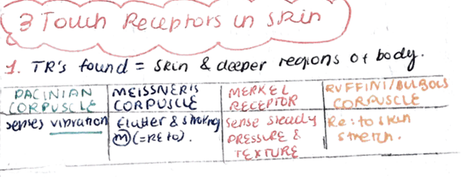 3 Touch Receptors in skin
1. TR's found = skin & deeper regions of body.
PACINIAN CORPUSCLE
MEISSNER'S CORPUSCLE
MERKEL RECEPTOR
RUFFINI/BULBOUS CORPUSCLE
senses vibration
flutter & stroking
M (=RE to).
Sense steady
PRESSURE &
TEXTURE
Re: to skin
stretch.